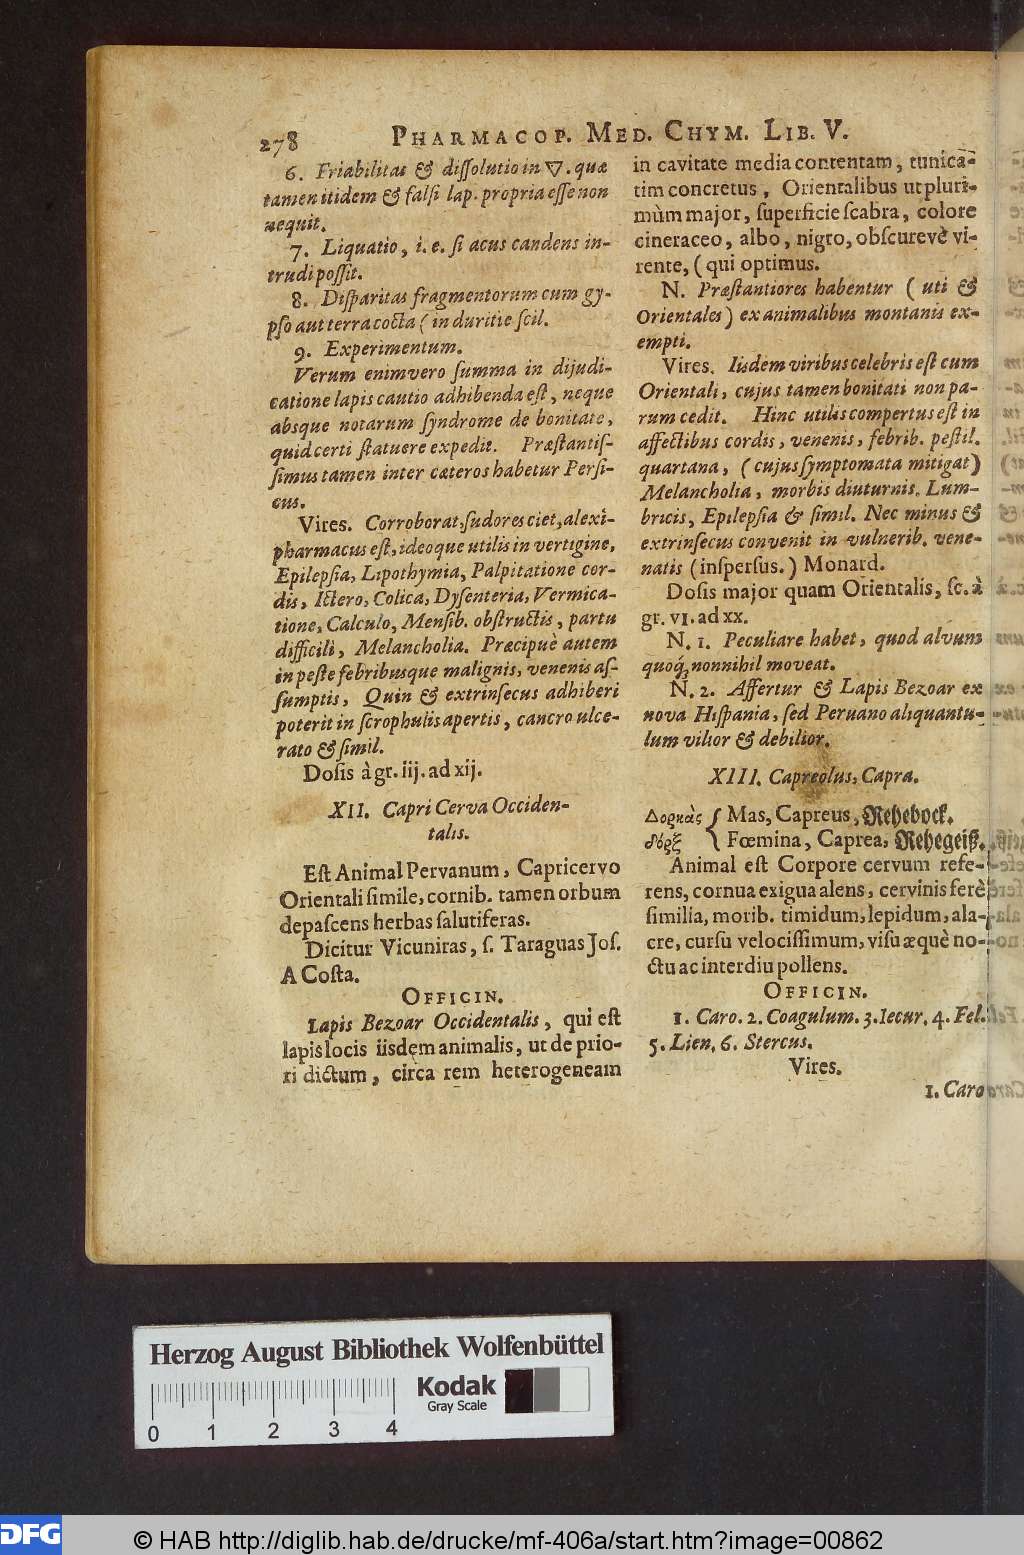 278 PHARMACOP. MED. CHYM. LIB. V.
6. Friabilitas & dissolutio in 🜄. quæ
tamen itidem & falsi lap. propria esse non
nequit.
7. Liquatio, i. e. si acus candens in-
trudi possit.
8. Disparitas fragmentorum cum gy-
pso aut terra cocta (in duritie scil.
9. Experimentum.
Verum enimvero summa in dijudi-
catione lapis cautio adhibenda est, neque
absque notarum syndrome de bonitate,
quid certi statuere expedit. Præstantis-
simus tamen inter cæteros habetur Persi-
cus.
Vires. Corroborat, sudores ciet, alexi-
pharmacus est, ideoque utilis in vertigine,
Epilepsia, Lipothymia, Palpitatione cor-
dis, Ictero, Colica, Dysenteria, Vermica-
tione, Calculo, Mensib. obstructis, partu
difficili, Melancholia. Præcipuè autem
in peste febribusque malignis, venenis as-
sumptis, Quin & extrinsecus adhiberi
poterit in scrophulis apertis, cancro ulce-
rato & simil.
Dosis à gr. iij. ad xij.
XII. Capri Cerva Occiden-
talis.
Est Animal Pervanum, Capricervo
Orientali simile, cornib. tamen orbum
depascens herbas salutiferas.
Dicitur Vicuniras, s. Taraguas Jos.
A Costa.
OFFICIN.
Lapis Bezoar Occidentalis, qui est
lapis locis iisdem animalis, ut de prio-
ri dictum, circa rem heterogeneam
in cavitate media contentam, tunica-
tim concretus, Orientalibus ut pluri-
mùm major, superficie scabra, colore
cineraceo, albo, nigro, obscurevè vi-
rente, (qui optimus.
N. Præstantiores habentur (uti &
Orientales) ex animalibus montanis ex-
empti.
Vires. Iisdem viribus celebris est cum
Orientali, cujus tamen bonitati non pa-
rum cedit. Hinc utilis compertus est in
affectibus cordis, venenis, febrib. pestil.
quartana, (cujus symptomata mitigat)
Melancholia, morbis diuturnis, Lum-
bricis, Epilepsia & simil. Nec minus &
extrinsecus convenit in vulnerib. vene-
natis (inspersus.) Monard.
Dosis major quam Orientalis, sc. à
gr. vi. ad xx.
N. 1. Peculiare habet, quod alvum
quoq; nonnihil moveat.
N. 2. Affertur & Lapis Bezoar ex
nova Hispania, sed Peruano aliquantu-
lum vilior & debilior.
XIII. Capreolus, Capra.
Δορκὰς { Mas, Capreus, Rehebock.
δόρξ { Fœmina, Caprea, Rehegeiß.
Animal est Corpore cervum refe-
rens, cornua exigua alens, cervinis ferè
similia, morib. timidum, lepidum, ala-
cre, cursu velocissimum, visu æquè no-
ctu ac interdiu pollens.
OFFICIN.
1. Caro. 2. Coagulum. 3. Iecur. 4. Fel.
5. Lien. 6. Stercus.
Vires.
1. Caro
Herzog August Bibliothek Wolfenbüttel
Kodak
Gray Scale
0 1 2 3 4
DFG © HAB http://diglib.hab.de/drucke/mf-406a/start.htm?image=00862